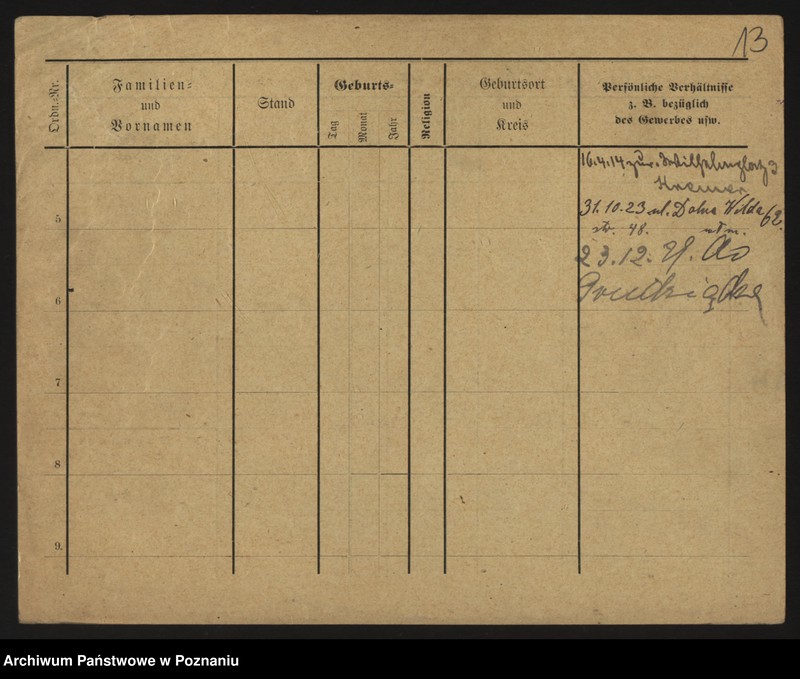 13
Ordn.-Nr.
Familien-
und
Vornamen
Stand
Geburts-
Tag
Monat
Jahr
Religion
Geburtsort
und
Kreis
Persönliche Verhältnisse
z. B. bezüglich
des Gewerbes usw.
16.4.14 zur. Wilhelmplatz 3
Kremer
31.10.23 ul. Dolna Wilda 62.
str. 48.
5
23.12.
6
7
8
9.
Archiwum Państwowe w Poznaniu